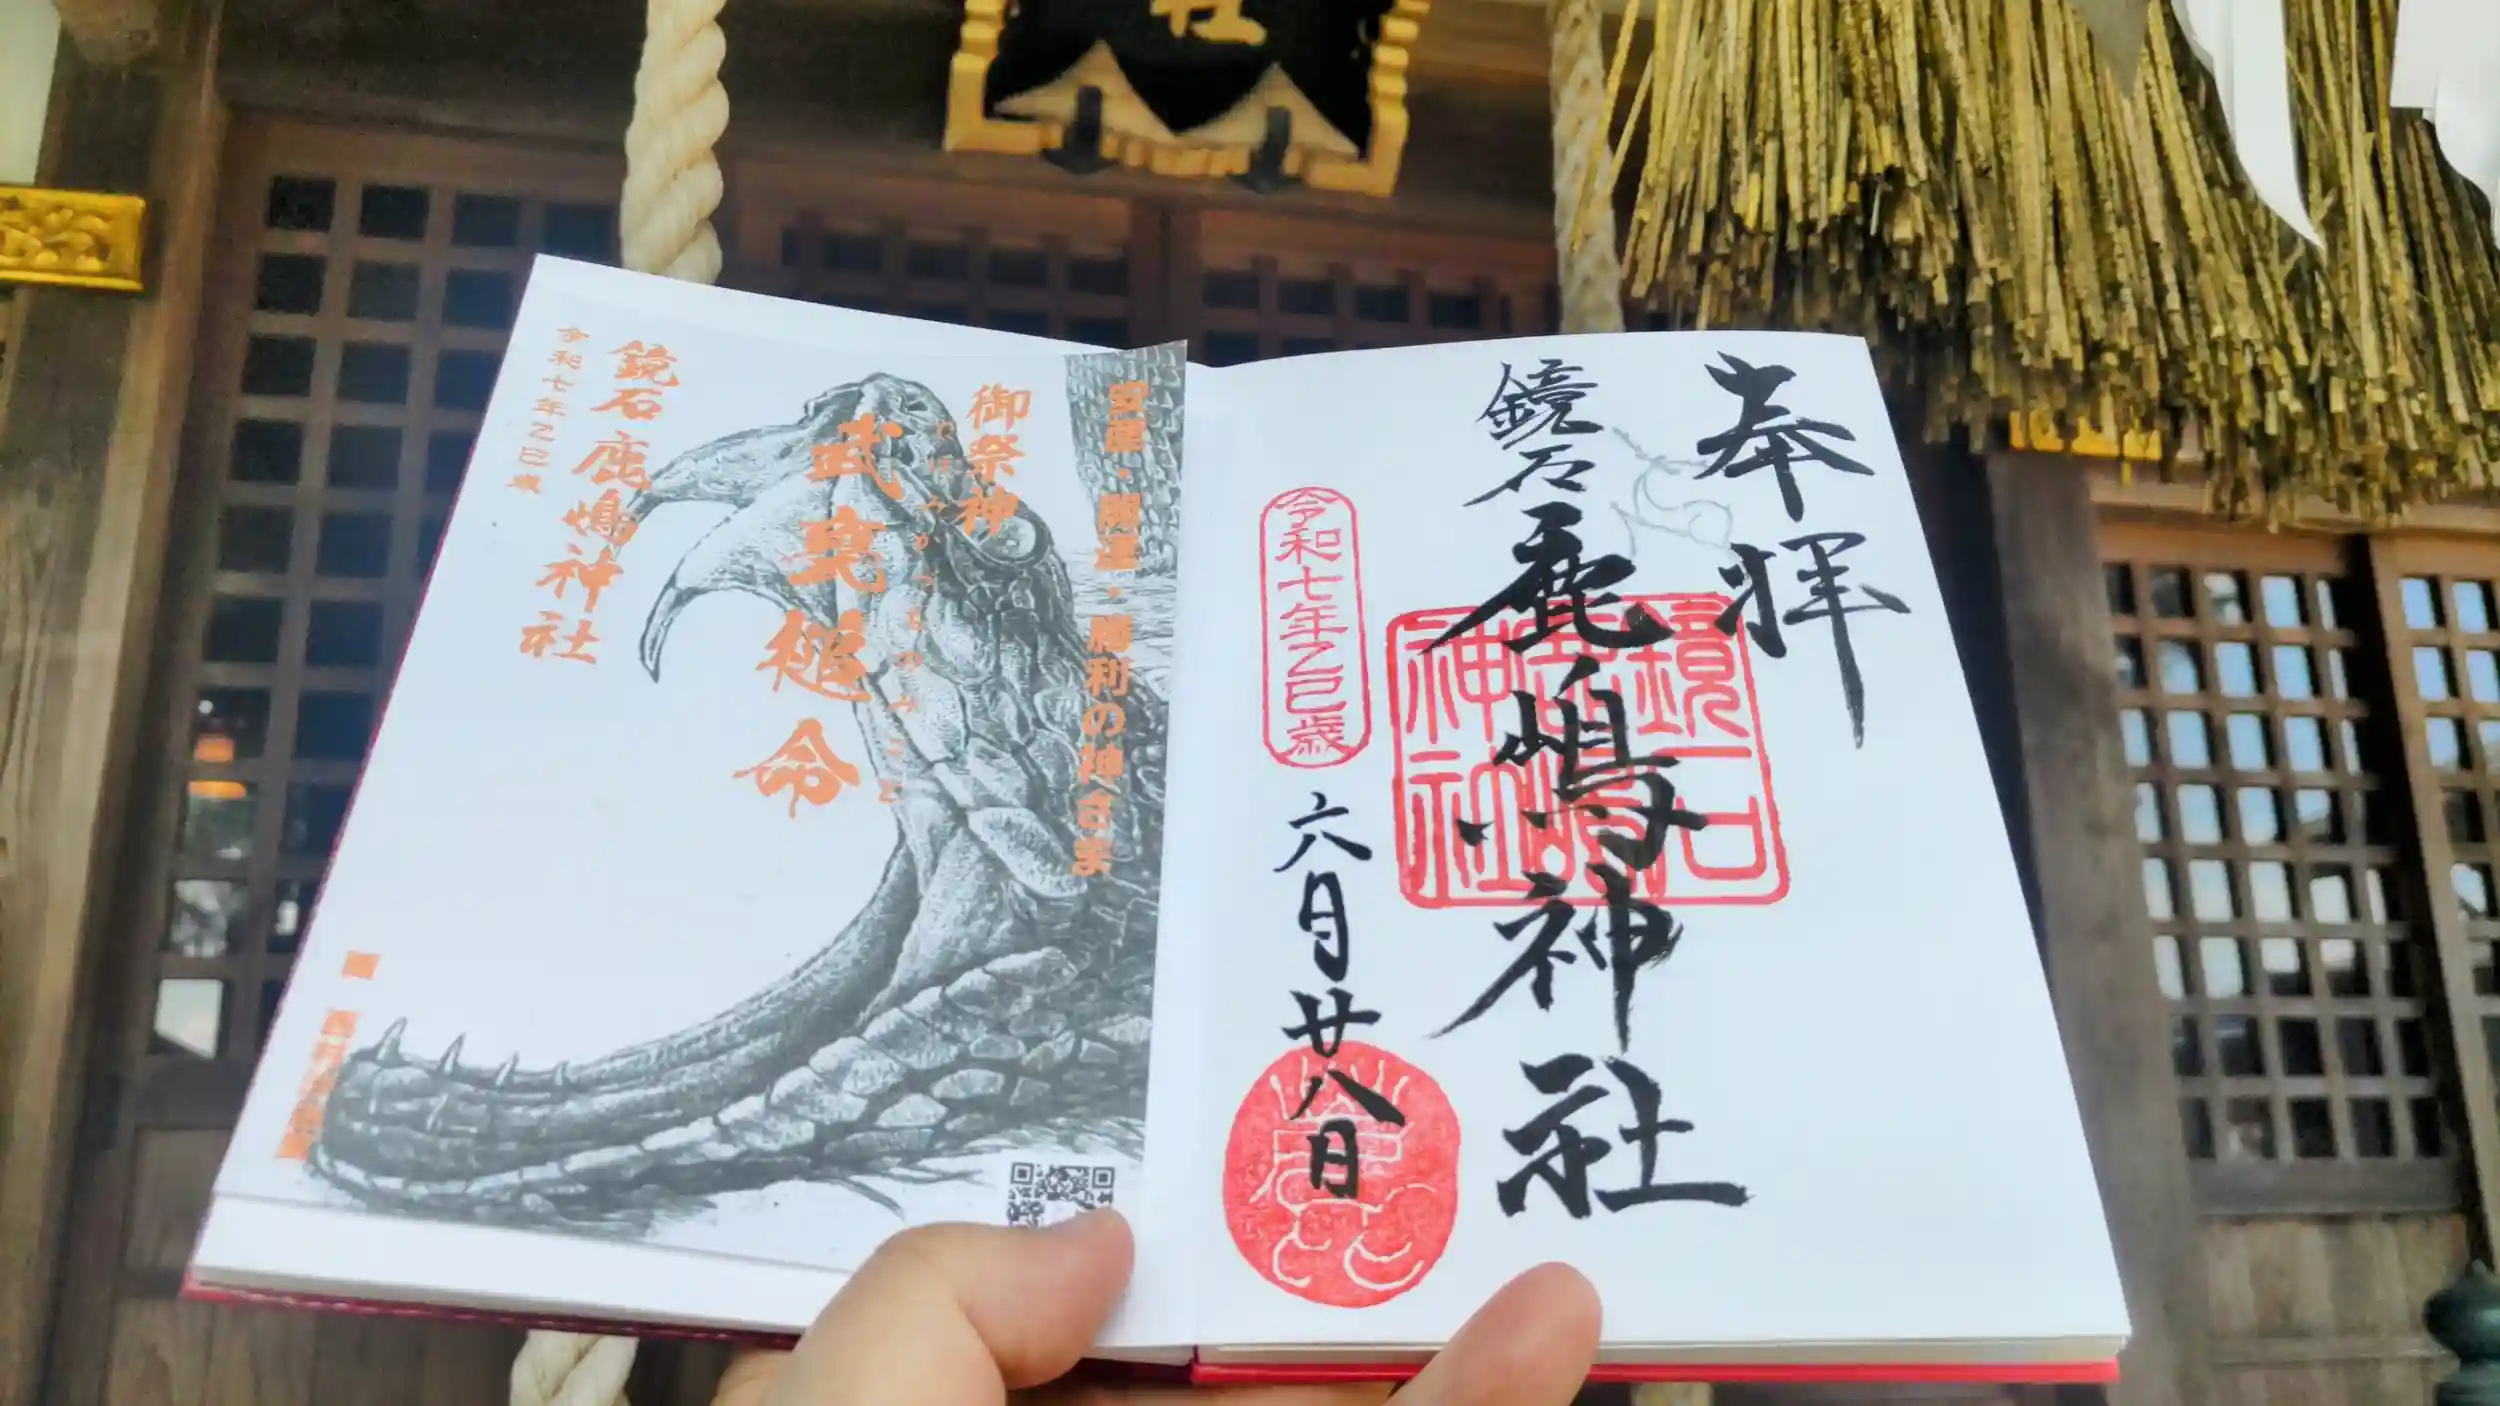 社
奉拝
鏡石鹿嶋神社
鏡石鹿嶋神社
令和七年乙巳歳
六月廿八日
安産・開運・勝利の神さま
御祭神
武甕槌命
たけみかつちのみこと
鏡石鹿嶋神社
令和七年乙巳歳